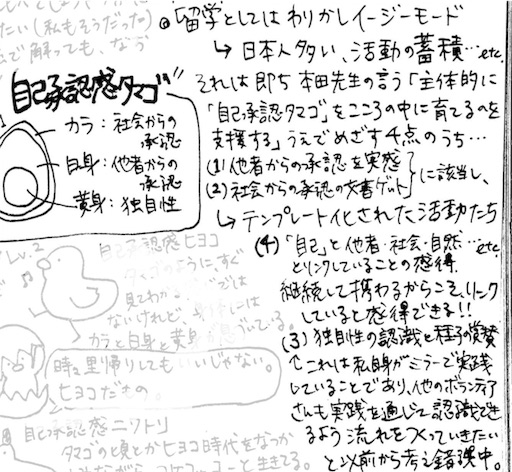 たい(私もそうだった)
で解っても、なか
自己承認感タマゴ
カラ：社会からの
承認
白身：他者からの
承認
黄身：独自性
Lv.2
自己承認感ヒヨコ
タマゴのように、すぐ
見てわか
では
ないけれど、
には
カラと白身と黄身が
づいている。
時々里帰りしてもいいじゃない。
ヒヨコだもの。
自己承認感ニワトリ
タマゴの頃とかヒヨコ時代をなつか
コケコッコーと生きてる。
◎留学としてはわりかしイージーモード
↳日本人多い、活動の蓄積…etc.
それは即ち本田先生の言う「主体的に
「自己承認タマゴ」をこころの中に育てるのを
支援する」うえでめざす4点のうち…
(1)他者からの承認を実感
(2)社会からの承認の文書ゲット
に該当し、
↳テンプレート化された活動たち
(4)「自己」と他者・社会・自然…etc.
とリンクしていることの感得
継続して携わるからこそ、リンク
していると感得できる!!
(3)独自性の認識と種子賞賛
↑これは私自身がミラーで実践
していることであり、他のボランティア
さんも実践を通じて認識でき
るよう流れをつくっていきたい
と以前から考え錯誤中。